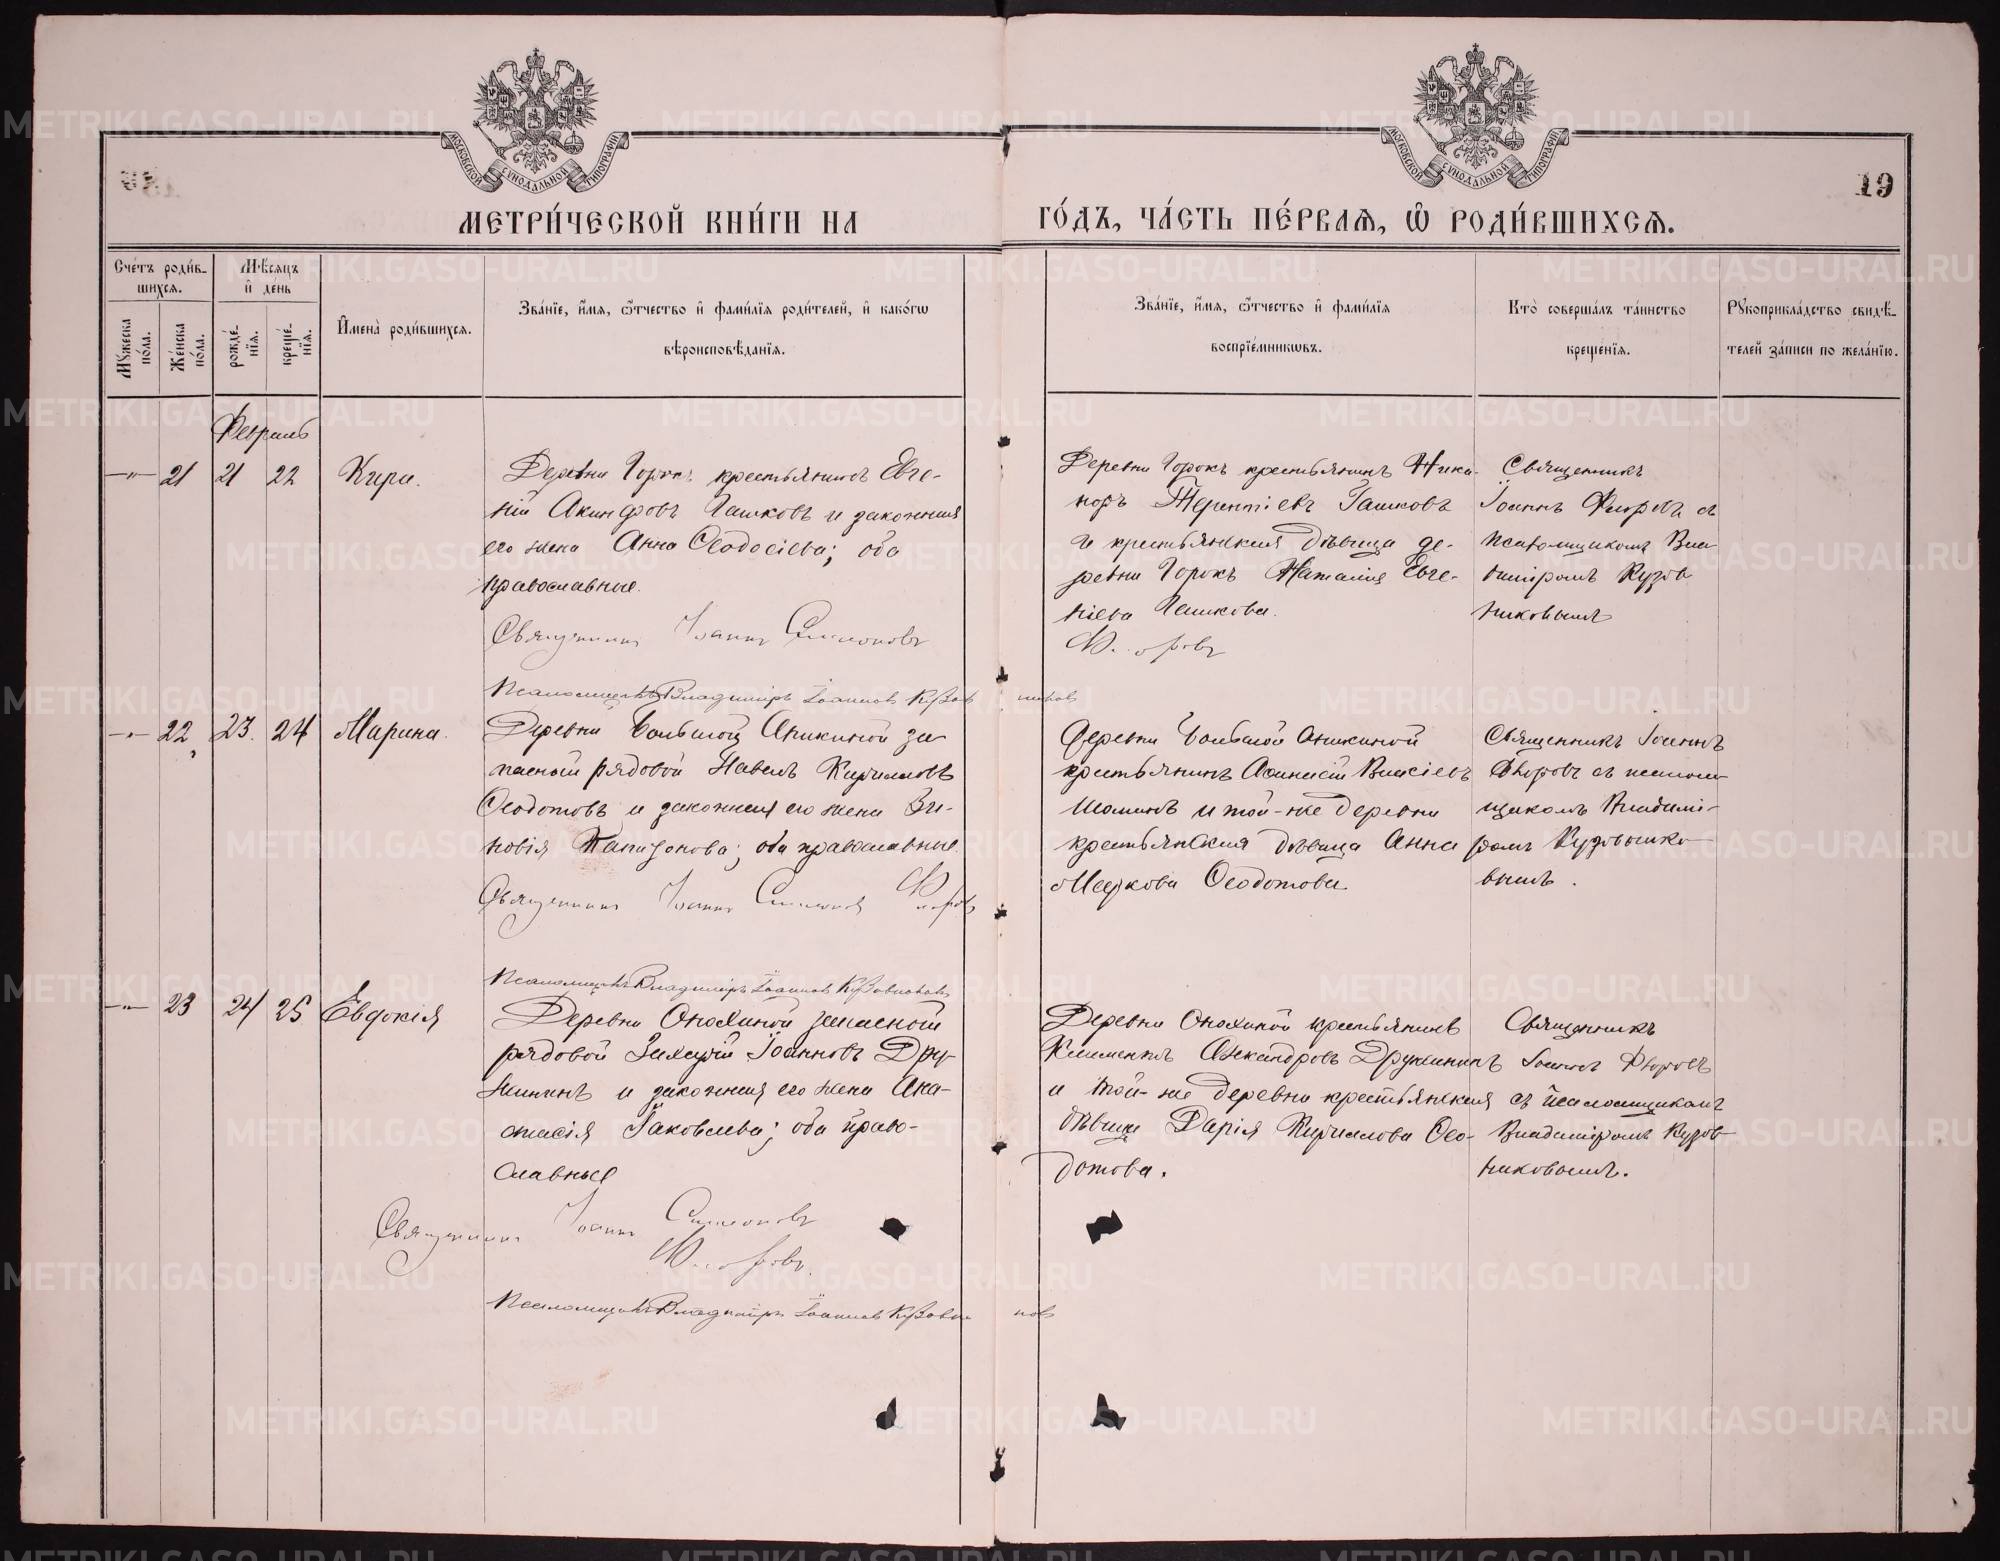 МОСКОВСКОЙ СѴНОДАЛЬНОЙ ТИПОГРАФІИ
МОСКОВСКОЙ СѴНОДАЛЬНОЙ ТИПОГРАФІИ
19
МЕТРИ́ЧЕСКОЙ КНИ́ГИ НА
ГО́ДЪ, ЧА́СТЬ ПЕ́РВАѦ, Ѡ҆ РОДИ́ВШИХСѦ.
Сче́тъ роди́в-
шихсѧ.
Мꙋ́жеска по́ла.
Же́нска по́ла.
Мѣ́сѧцъ
и҆ де́нь
рожде́-
нїѧ.
креще́-
нїѧ.
И҆мена̀ роди́вшихсѧ.
Зва́нїе, и҆́мѧ, ѻ҆́тчество и҆ фами́лїѧ роди́телей, и҆ како́гѡ
вѣроисповѣ́данїѧ.
Зва́нїе, и҆́мѧ, ѻ҆́тчество и҆ фами́лїѧ
воспрїе́мникѡвъ.
Кто̀ соверша́лъ та́инство
креще́нїѧ.
Рꙋкоприкла́дство свидѣ́-
телей за́писи по жела́нїю.
Февраль
—"— 21 21 22 Кира.
Деревни Горокъ крестьянинъ Евге-
ній Акинфовъ Пашковъ и законная
его жена Анна Ѳеодосіева; оба
православные.
Священникъ Іоаннъ Симеоновъ
Псаломщикъ Владиміръ Іоанновъ Кузовниковъ
Деревни Горокъ крестьянинъ Ника-
норъ Терентіевъ Пашковъ
и крестьянская дѣвица де-
ревни Горокъ Наталія Евге-
ніева Пашкова.
Флоровъ
Священникъ
Іоаннъ Флоровъ съ
псаломщикомъ Вла-
диміромъ Кузов-
никовымъ
—"— 22 23. 24 Марина.
Деревни Большой Аникиной за-
пасный рядовой Павелъ Кирилловъ
Ѳеодотовъ и законная его жена Зи-
новія Капитонова; оба православные.
Священникъ Іоаннъ Симеоновъ Флоровъ
Псаломщикъ Владиміръ Іоанновъ Кузовниковъ
Деревни Большой Аникиной
крестьянинъ Аѳанасій Власіевъ
и той-же деревни
крестьянская дѣвица Анна
Маркова Ѳеодотова
Священникъ Іоаннъ
Флоровъ съ псалом-
щикомъ Владимі-
ромъ Кузовнико-
вымъ.
—"— 23 24 25 Евдокія
Деревни Опохиной запасный
рядовой Захарій Іоанновъ Дру-
жининъ и законная его жена Ана-
стасія Іаковлева; оба право-
славные
Священникъ Іоаннъ Симеоновъ
Флоровъ.
Псаломщикъ Владиміръ Іоанновъ Кузовниковъ
Деревни Опохиной крестьянинъ
Климентъ Александровъ Дружининъ
и той-же деревни крестьянская
дѣвица Дарія Кириллова Ѳео-
дотова.
Священникъ
Іоаннъ Флоровъ
съ псаломщикомъ
Владиміромъ Кузов-
никовымъ.
METRIKI.GASO-URAL.RU